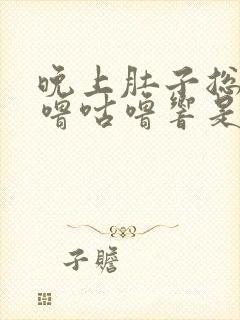 晚上肚子总
噜咕噜响是
子瞻